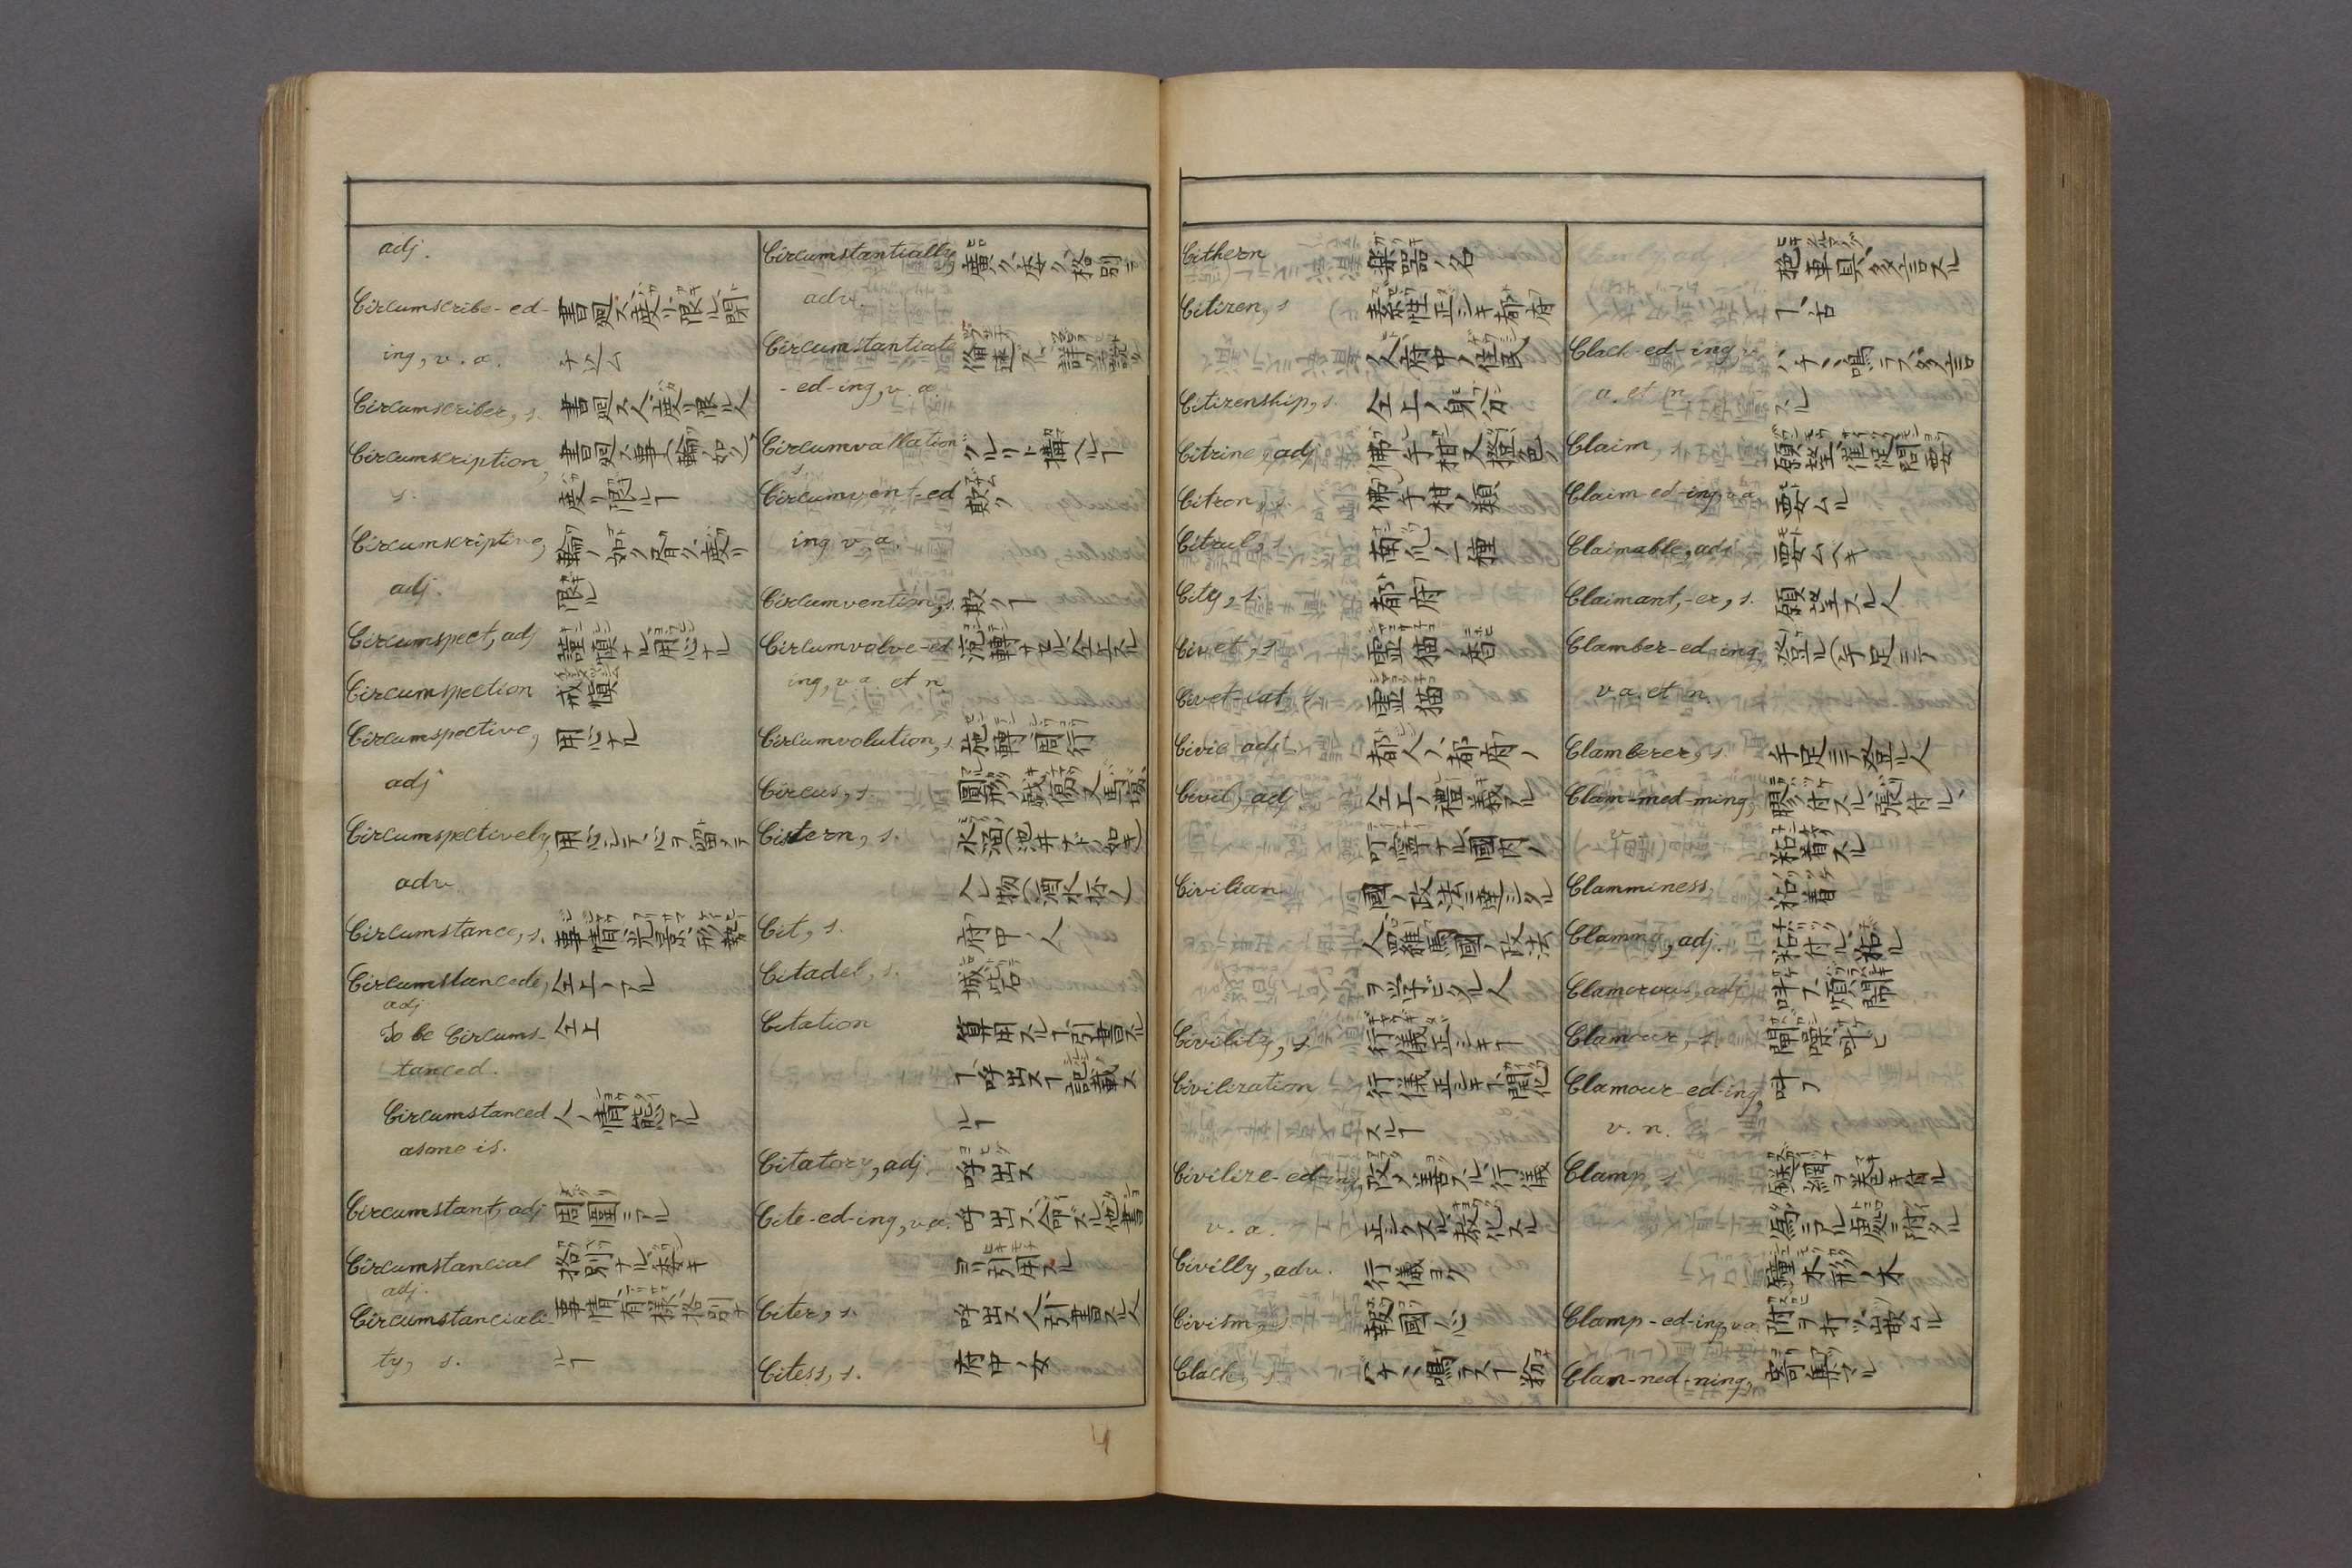 adj.
Circumscribe-ed- 書廻ス、度リ限ル、閉
ing, v. a. チ込ム
Circumscriber, s. 書廻ス人、度リ限ル人
Circumscription, 書廻ス事(輪ノ如ク)
s. 度リ限ル7
Circumscriptive, 輪ノ如ク省ク、度リ
adj. 限ル
Circumspect, adj 謹慎ナル、用心ナル
Circumspection 戒慎
Circumspective, 用心ナル
adj
Circumspectively, 用心シテ、心ヲ留メテ
adv.
Circumstance, s. 事情、光景、形勢
Circumstancede, 仝上ノアル
adj
To be Circums- 仝上
tanced.
Circumstanced 人ノ情態アル
as one is.
Circumstant, adj 周圍ニアル
Circumstancial 格別ナル、委キ
adj.
Circumstanciali- 事情、有樣、格別ナ
ty, s. ル7
Circumstantially 廣ク、委ク、格別ニ
adv.
Circumstantiate
-ed-ing, v. a.
Circumvallation クルリト構ヘル7
s.
Circumvent-ed 欺ク
ing v, a.
Circumvention, s. 欺ク7
Circumvolve-ed 流轉サセル、仝上スル
ing, v a et n.
Circumvolution, s. 施轉、周行
Circus, s. 圓形ノ戯塲、又馬塲
Cistern, s. 水溜(池井ナドノ如キ)
入レ物(酒水抔ノ)
Cit, s. 府中ノ人
Citadel, s. 城砦
Citation 算用スル7、引書スル
7、呼出ス7、記載ス
ル7
Citatory, adj. 呼出ス
Cite-ed-ing, v.a. 呼出ス、命ズル、他書
ヨリ引用スル
Citer, s. 呼出ス人、引書スル人
Citess, s. 府中ノ女
Cithern 樂器ノ名
Citizen, s 素性正シキ都府
人、府中ノ住民
Citizenship, s. 仝上ノ身分
Citrine, adj 佛手柑、又橙色ノ
Citron, s. 佛手柑ノ類
Citrul, s. 南瓜ノ一種
City, s. 都府
Civet, s 靈猫ノ香
Civet-cat, s. 靈猫
Civic adj 都人ノ、都府ノ
Civil, adj 仝上ノ、禮義アル
叮寧ナル、國内ノ
Civilian 國ノ政法ニ達シタル
人、羅馬國ノ政法
ヲ学ビタル人
Civility, s. 行儀正シキ7
Civilization 行儀正シキ7、開化
スル7
Civilize-ed-ing, 改メ善スル、行儀
v. a. 正シクスル、教化スル
Civilly, adv. 行儀ヨク
Civism, s. 報國ノ心
Clack, s
多言スル
7、舌
Clack-ed-ing v.
a. et n. スル
Claim, s 願望、催促、問、要
Claim-ed-ing, v.a. 要ムル
Claimable, adj 要ムヘキ
Claimant,-er, s. 願望スル人
Clamber-ed-ing, 登ル(手足ニテ)
v.a. et n.
Clamberer, s. 手足ニテ登ル人
Clam-med-ming, 膠付スル、張付ル、
v. 粘着スル
Clamminess, 粘着
Clammy, adj. 粘付ル、粘ル
Clamorous, adj 呼フ、煩鬧
Clamour, s. 閙噪、呼ビ
Clamour-ed-ing, 呼フ
v. n.
Clamp, s
Clamp-ed-ing, v.a.
Clan-ned-ning, 寄集ル
4